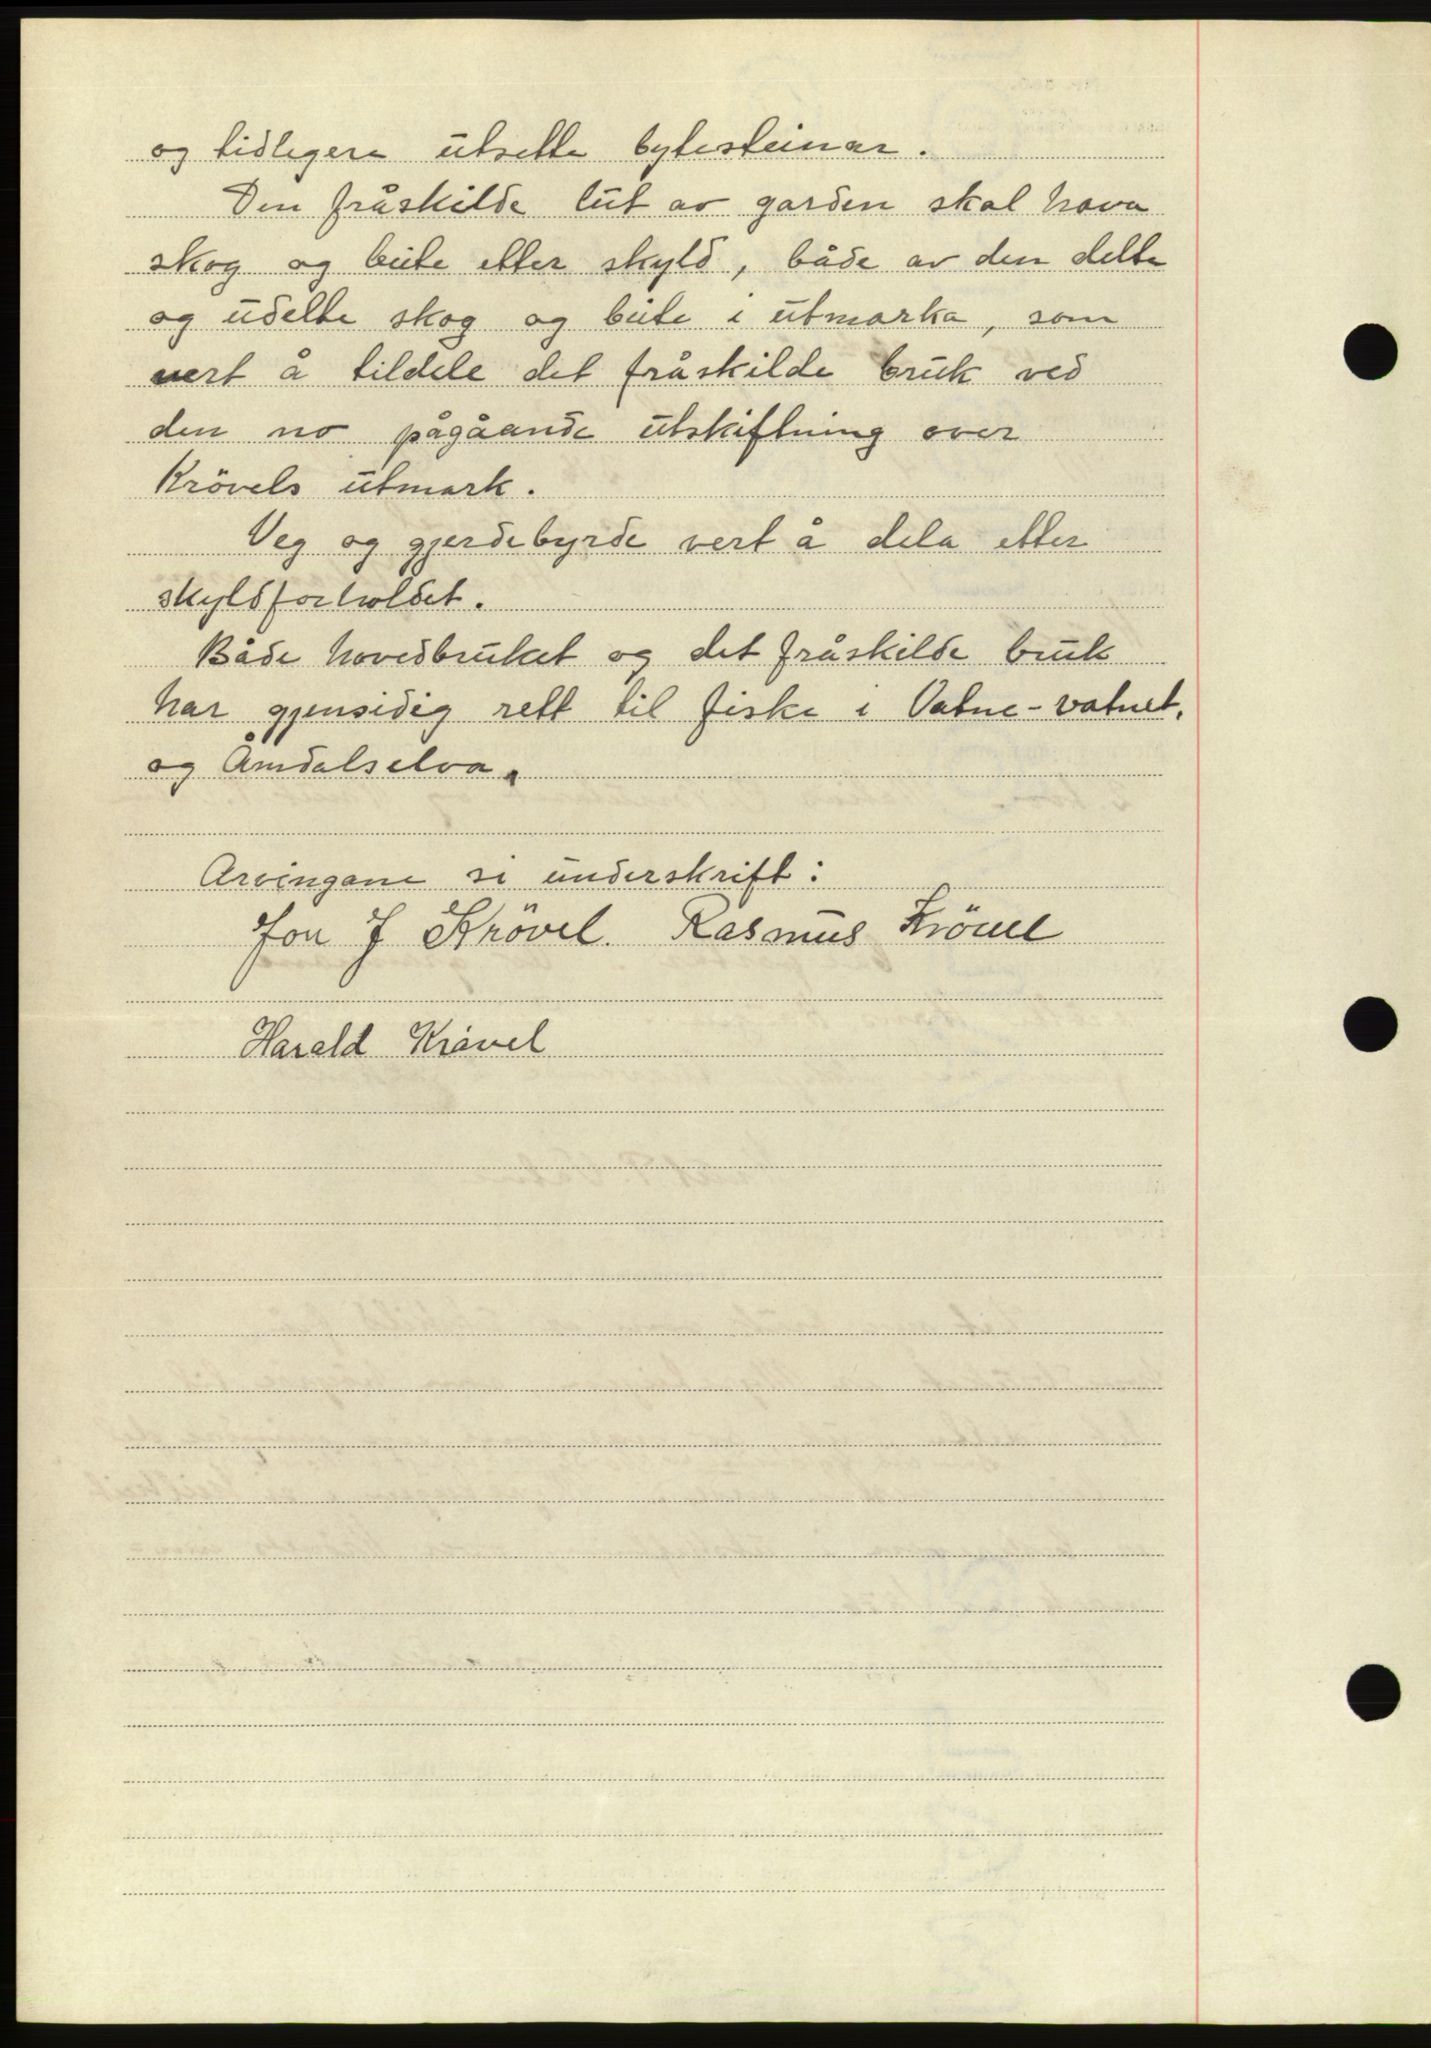 og tidlegere utsette bytesteinar.
Den fråskilde lut av garden skal hava
skog og beite etter skyld, både av den delte
og udelte skog og beite i utmarka, som
vert å tildele det fråskilde bruk ved
den no pågåande utskiftning over
Krövels utmark.
Veg og gjerdebyrde vert å dela etter
skyldforholdet.
Både hovedbruket og det fråskilde bruk
har gjensidig rett til fiske i Vatne-vatnet,
og Åmdalselva.
Arvingane si underskrift:
Jon J Krövel. Rasmus Krövel
Harald Krøvel